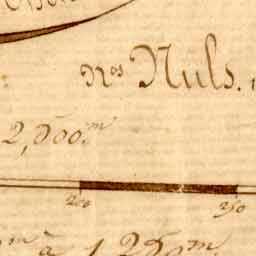 Nos Nuls.
2,500.m
200 250
m à 1,250m.